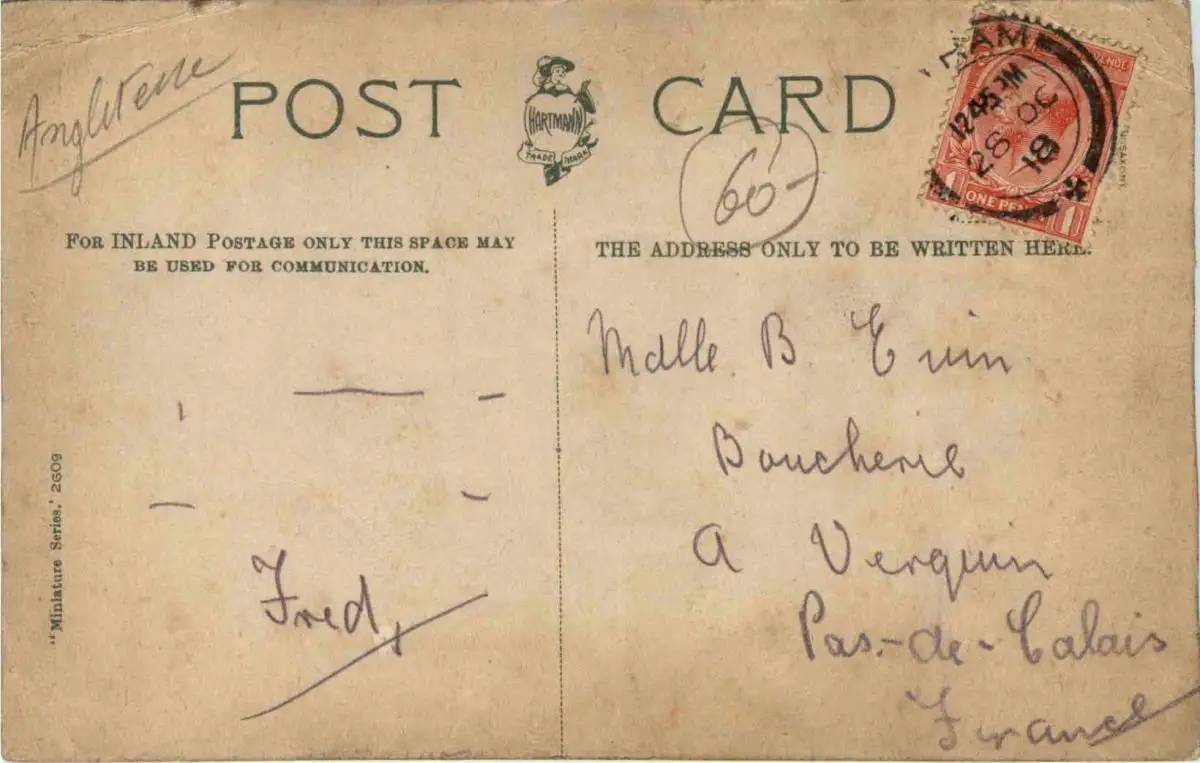 Angleterre
POST CARD
HARTMANN
TRADE MARK
60-
12 45 PM
28 OC
18
ONE PENNY
1 1
FOR INLAND POSTAGE ONLY THIS SPACE MAY
BE USED FOR COMMUNICATION.
THE ADDRESS ONLY TO BE WRITTEN HERE.
"Miniature Series." 2609
Mdlle B. Euin
Boucherie
A Verquin
Pas-de-Calais
France
Fred,